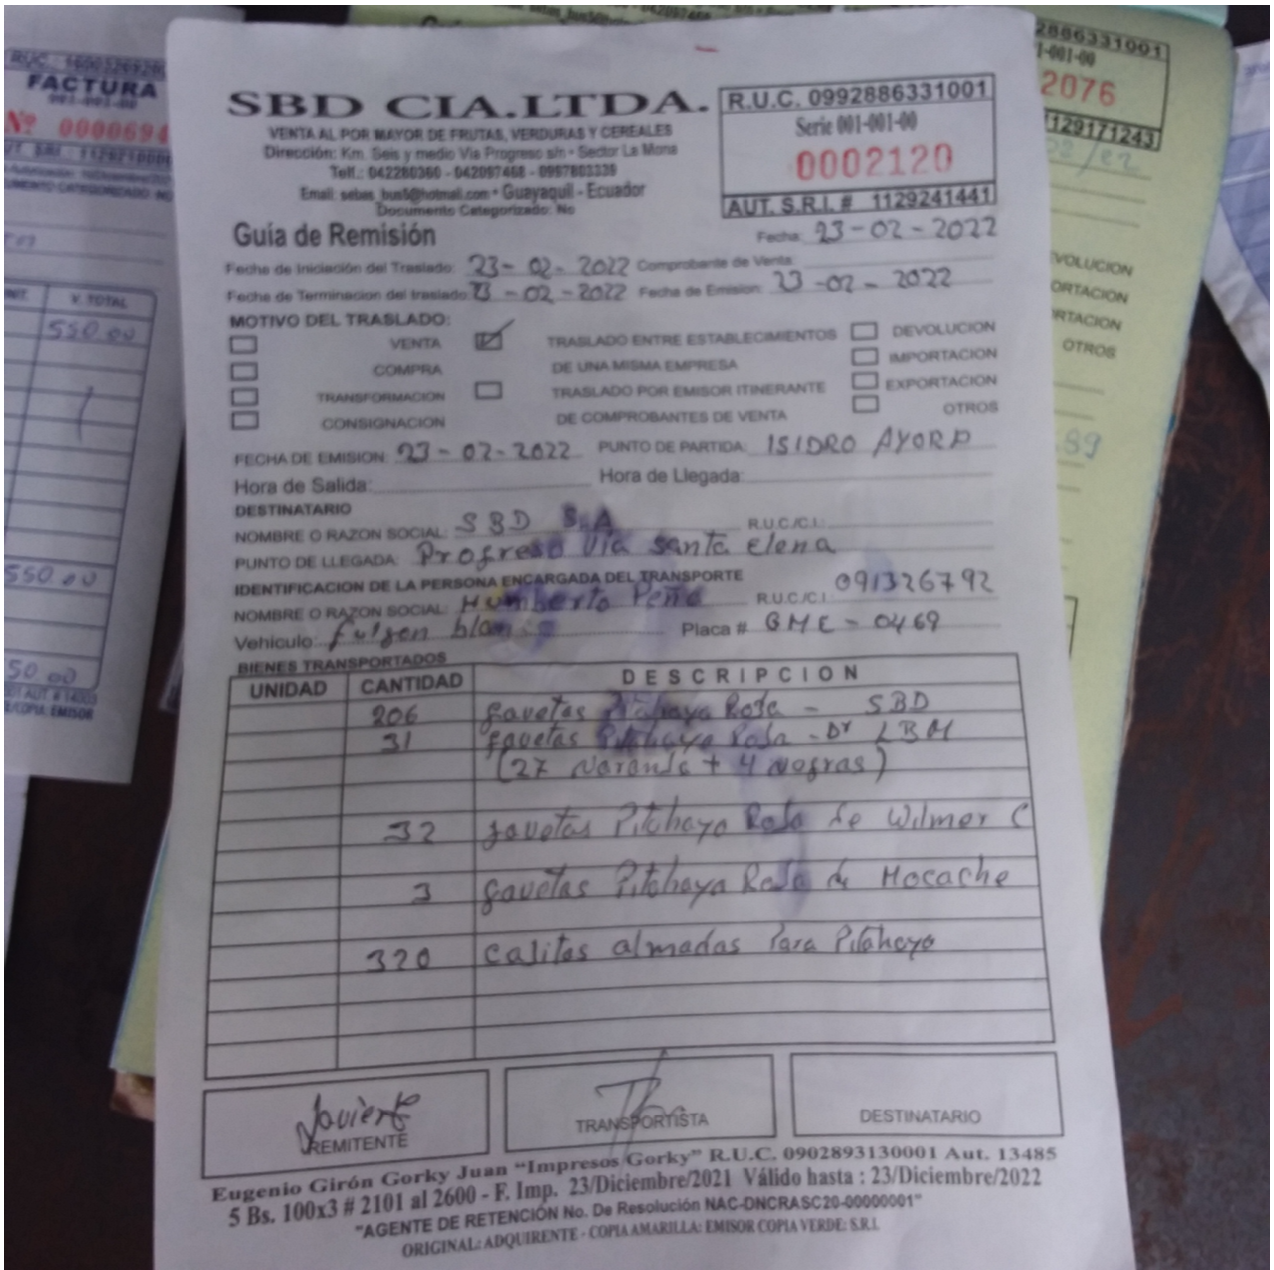 SBD CIA.LTDA.
VENTA AL POR MAYOR DE FRUTAS, VERDURAS Y CEREALES
Dirección: Km. Seis y medio Via Progreso s/n - Sector La Mona
Telf.: 042280360 - 042097468 - 0997803339
Email: sebas_bus5@hotmail.com • Guayaquil - Ecuador
Documento Categorizado: No
R.U.C. 0992886331001
Serie 001-001-00
0002120
AUT. S.R.I. # 1129241441
Guía de Remisión
Fecha: 23-02-2022
Fecha de Iniciación del Traslado: 23-02-2022 Comprobante de Venta:
Fecha de Terminacion del traslado: 23-02-2022 Fecha de Emision: 23-02-2022
MOTIVO DEL TRASLADO:
VENTA TRASLADO ENTRE ESTABLECIMIENTOS DEVOLUCION
COMPRA DE UNA MISMA EMPRESA IMPORTACION
TRANSFORMACION TRASLADO POR EMISOR ITINERANTE EXPORTACION
CONSIGNACION DE COMPROBANTES DE VENTA OTROS
FECHA DE EMISION: 23-02-2022 PUNTO DE PARTIDA: ISIDRO AYORA
Hora de Salida: Hora de Llegada:
DESTINATARIO
NOMBRE O RAZON SOCIAL: SBD S.A R.U.C./C.I.:
PUNTO DE LLEGADA: Progreso Via Santa Elena
IDENTIFICACION DE LA PERSONA ENCARGADA DEL TRANSPORTE
NOMBRE O RAZON SOCIAL: Humberto Peña R.U.C./C.I.: 091326792
Vehiculo: Placa # GME-0469
BIENES TRANSPORTADOS
UNIDAD CANTIDAD DESCRIPCION
206 gavetas Pitahaya Rosa - SBD
31 gavetas Pitahaya Rosa - Dr LBM
(27 Naranja + 4 Negras)
32 gavetas Pitahaya Rosa de Wilmer C
3 gavetas Pitahaya Rosa de Mocache
320 Cajitas almadas Para Pitahaya
REMITENTE
TRANSPORTISTA
DESTINATARIO
Eugenio Girón Gorky Juan "Impresos Gorky" R.U.C. 0902893130001 Aut. 13485
5 Bs. 100x3 # 2101 al 2600 - F. Imp. 23/Diciembre/2021 Válido hasta : 23/Diciembre/2022
"AGENTE DE RETENCIÓN No. De Resolución NAC-DNCRASC20-00000001"
ORIGINAL: ADQUIRENTE - COPIA AMARILLA: EMISOR COPIA VERDE: S.R.I.
FACTURA
001-001-00
Nº 0000694
V. TOTAL
550.00
550.00
50.00
2886331001
1-001-00
2076
1129171243
02/22
VOLUCION
ORTACION
RTACION
OTROS